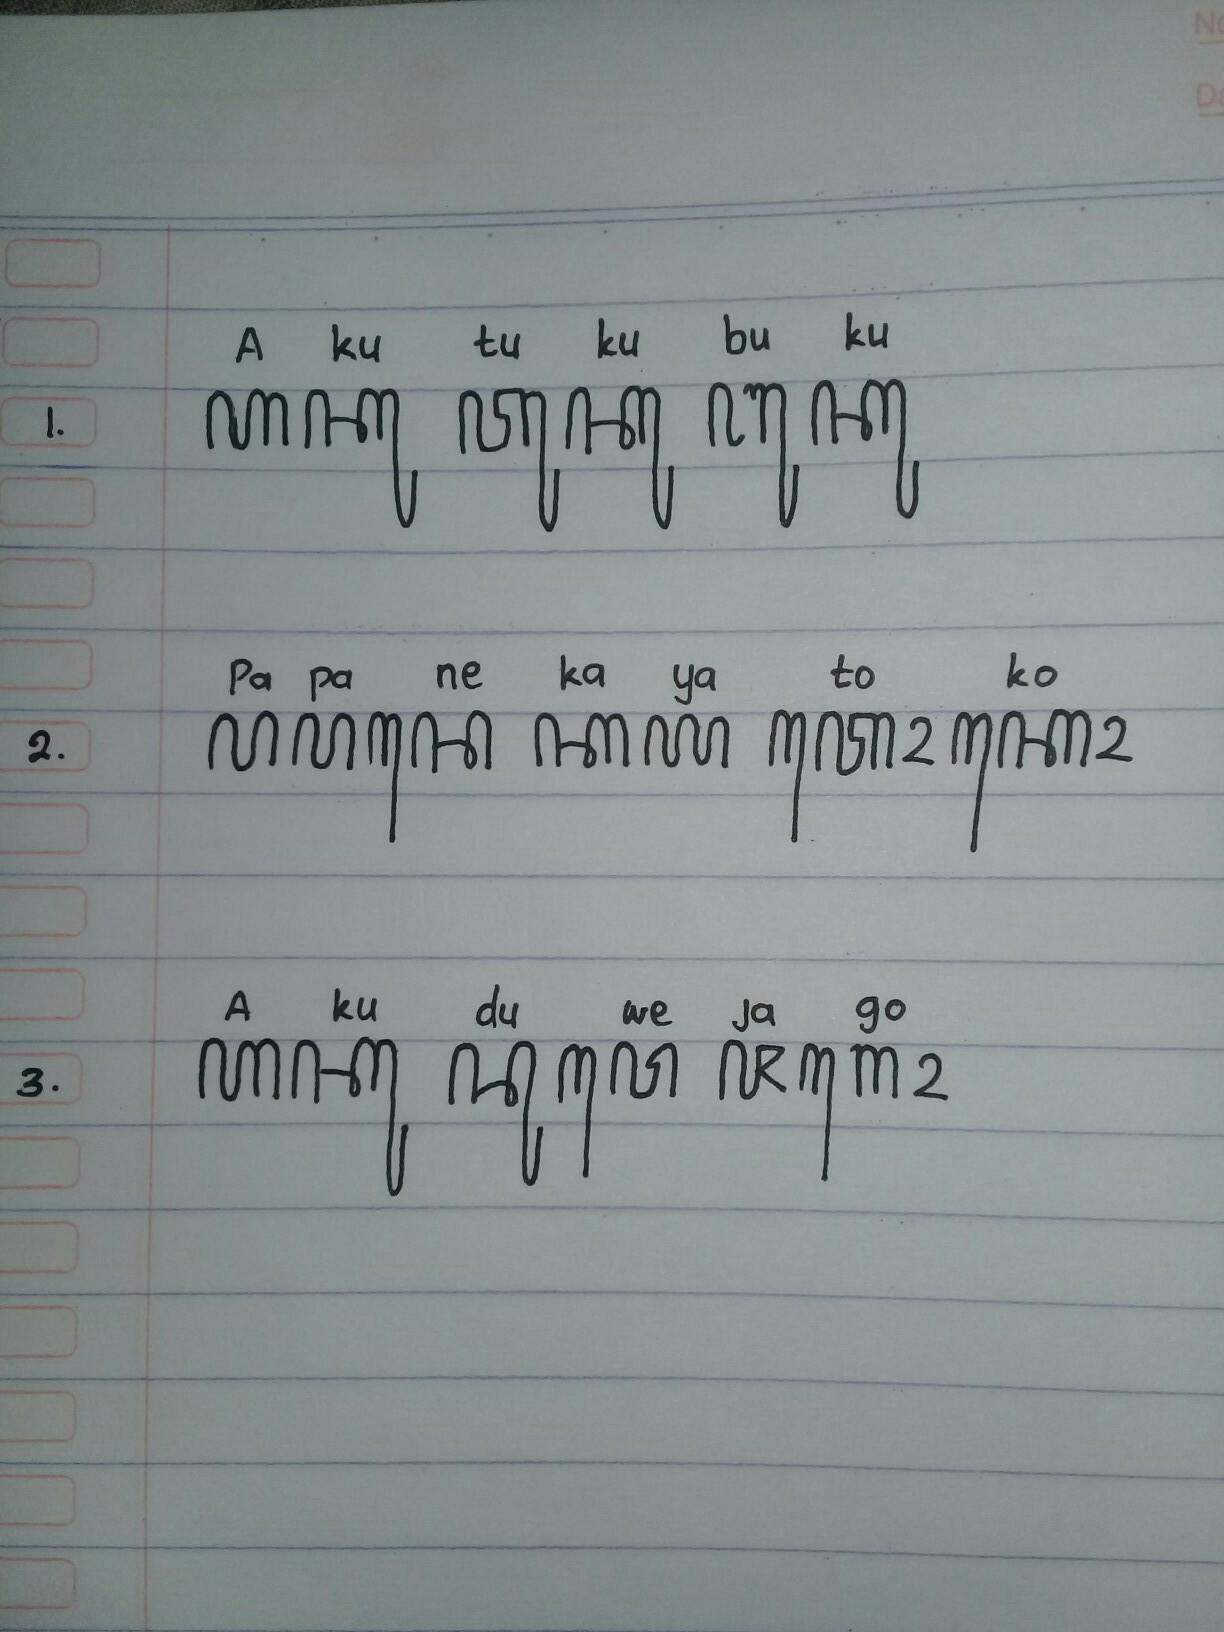 No
A ku tu ku bu ku
1. ꦲꦏꦸ ꦠꦸꦏꦸ ꦧꦸꦏꦸ
Pa pa ne ka ya to ko
2. ꦥꦥꦤꦺ ꦏꦪ ꦠꦺꦴꦏꦺꦴ
A ku du we Ja go
3. ꦲꦏꦸ ꦢꦸꦮꦺ ꦗꦒꦺꦴ